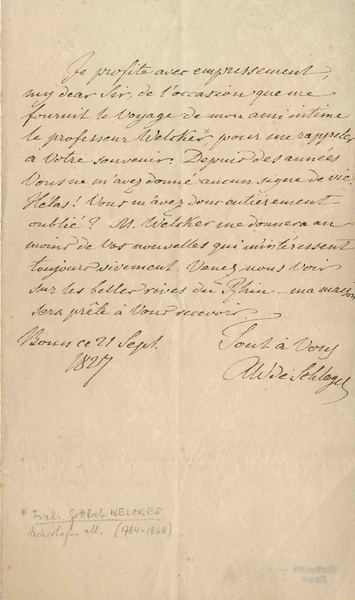 Je profite avec empressement,
my dear Sir, de l'occasion que me
fournit le voyage de mon ami intime
le professeur Welcker* pour me rappeler
à Votre souvenir. Depuis des années
Vous ne m'avez donné aucun signe de vie.
Helas! Vous m'avez donc entièrement
oublié? M. Welcker me donnera au
moins de Vos nouvelles qui m'intéressent
toujours vivement. Venez nous voir
sur les belles rives du Rhin - ma maison
sera prête à Vous recevoir.
Bonn ce 21 Sept. Tout à Vous
1827 AW de Schlegel
* Friedr. Gottlieb WELCKER
Archéologue all. (1784-1868)